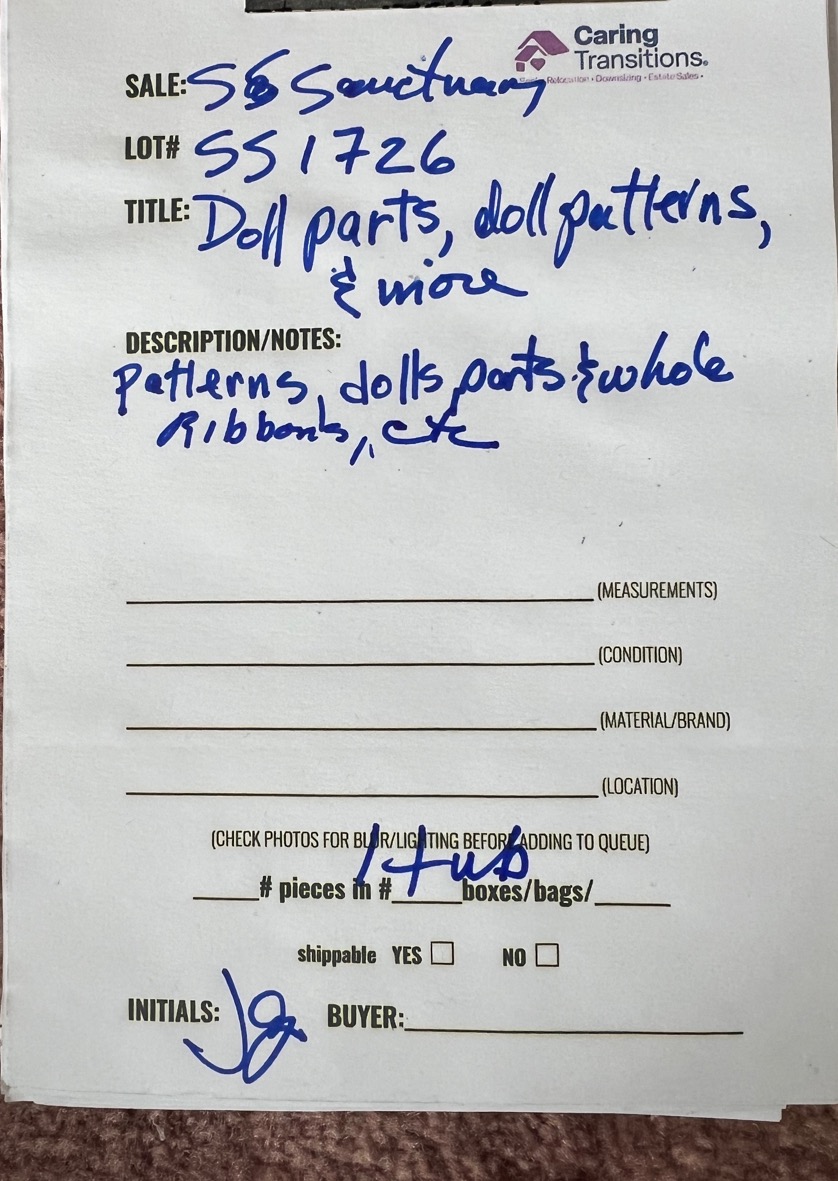 Caring
Transitions.
Relocation • Downsizing • Estate Sales •
SALE: SS Sanctuary
LOT# SS 1726
TITLE: Doll parts, doll patterns,
& more
DESCRIPTION/NOTES:
Patterns, dolls, parts & whole
Ribbons, etc
(MEASUREMENTS)
(CONDITION)
(MATERIAL/BRAND)
(LOCATION)
(CHECK PHOTOS FOR BLUR/LIGHTING BEFORE ADDING TO QUEUE)
1 tub
# pieces in # boxes/bags/
shippable YES NO
INITIALS: BUYER: